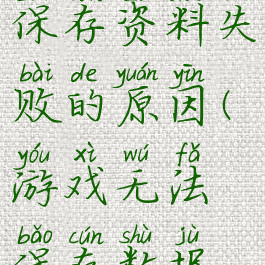 保存资料失
bài de yuán yīn
败的原因(
yóu xì wú fǎ
游戏无法
bǎo cún shù jù
保存数据